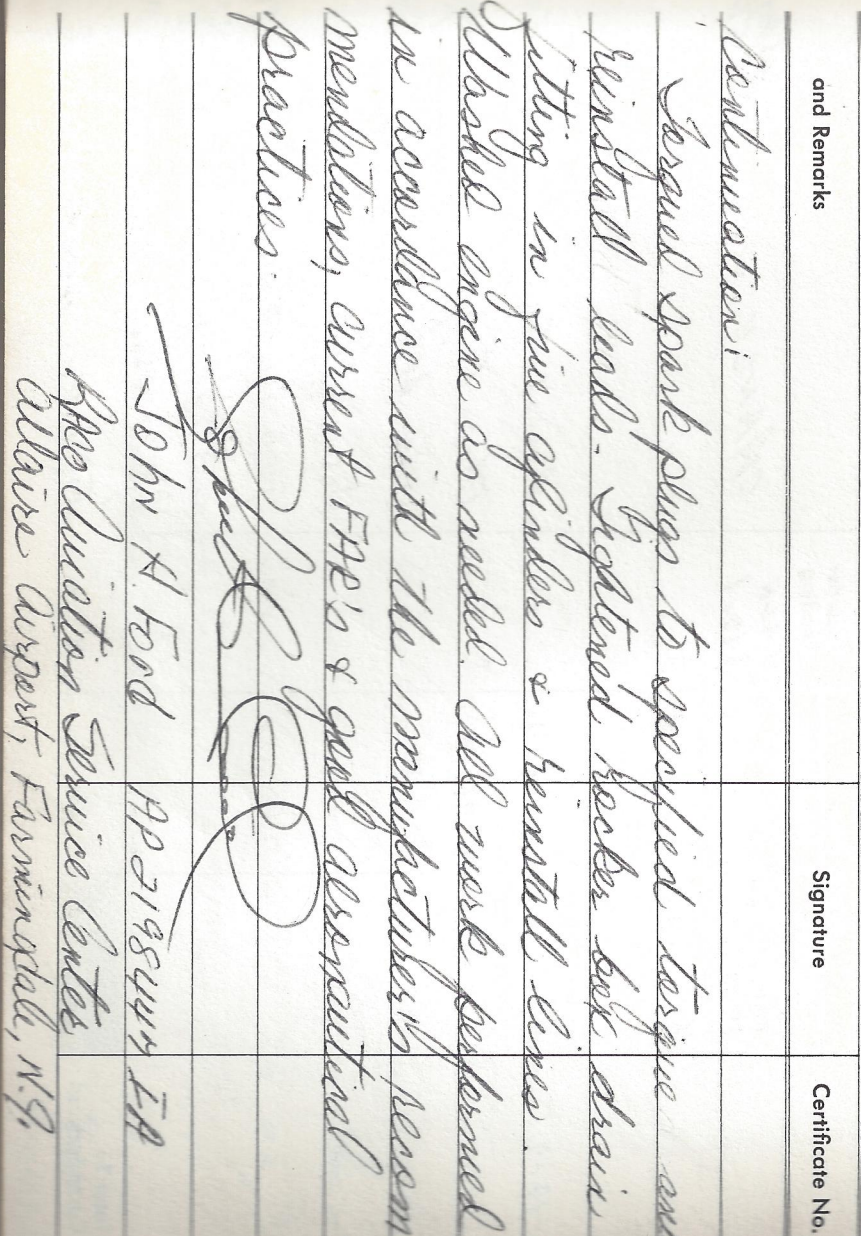 and Remarks Signature Certificate No.
Continuation:
Torqued spark plugs to specified torque an
reinstall leads. Tightened rocker box drain
fitting in five cylinders & reinstall lines.
Washed engine as needed. All work performed
in accordance with the manufacturer's recom
mendations, current FAR's & good aeronautical
practices.
John H. Ford AP 2198447 IA
Aviation Service Center
Allaire Airport, Farmingdale, N.J.